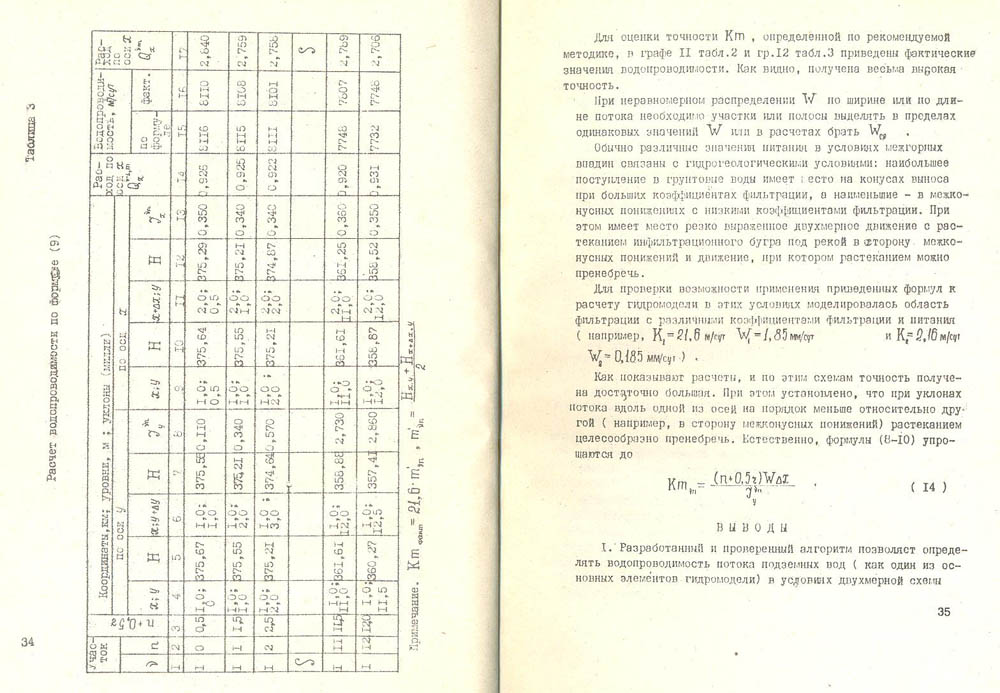 34
Таблица 3
Расчет водопроводимости по формуле (9)
Учас-ток | n + 0,5z | Координаты, км; уровни, м; уклоны (милли) | Рас-ход по оси x | Водопроводи-мость, м²/сут | Рас-ход по оси x
по оси y | по оси x
ν | n | x; y | H | x; y+Δy | H | x; y | H | x+Δx; y | H | по форму-ле | факт.
I | 2 | 3 | 4 | 5 | 6 | 7 | 8 | 9 | I0 | II | I2 | I3 | I4 | I5 | I6 | I7
I | 0 | 0,5 | I,0; 0 | 375,67 | I,0; I,0 | 375,58 | 0,II0 | I,0; 0,5 | 375,64 | 2,0; 0,5 | 375,29 | 0,350 | 0,926 | 8II6 | 8II0 | 2,840
I | I | I,5 | I,0; I,0 | 375,55 | I,0; 2,0 | 375,2I | 0,340 | I,0; I,0 | 375,55 | 2,0; I,0 | 375,2I | 0,340 | 0,925 | 8II5 | 8I08 | 2,759
I | 2 | 2,5 | I,0; 2,0 | 375,2I | I,0; 3,0 | 374,64 | 0,570 | I,0; 2,0 | 375,2I | 2,0; 2,0 | 374,87 | 0,340 | 0,922 | 8III | 8I0I | 2,758
I | II | II,5 | I,0; II,0 | 36I,6I | I,0; I2,0 | 358,88 | 2,730 | I,0; II,0 | 36I,6I | 2,0; II,0 | 36I,25 | 0,360 | 0,920 | 7748 | 7607 | 2,789
I | I2 | I20 | I,0; II,5 | 360,27 | I,0; I2,5 | 357,4I | 2,860 | I,0; I2,0 | 358,87 | 2,0; I2,0 | 358,52 | 0,350 | 0,93I | 7732 | 7748 | 2,706
Примечание.
Для оценки точности Km , определенной по рекомендуемой
методике, в графе II табл.2 и гр.I2 табл.3 приведены фактические
значения водопроводимости. Как видно, получена весьма высокая
точность.
При неравномерном распределении W по ширине или по дли-
не потока необходимо участки или полосы выделять в пределах
одинаковых значений W или в расчетах брать Wср .
Обычно различные значения питания в условиях межгорных
впадин связаны с гидрогеологическими условиями: наибольшее
поступление в грунтовые воды имеет место на конусах выноса
при больших коэффициентах фильтрации, а наименьшие - в межко-
нусных понижениях с низкими коэффициентами фильтрации. При
этом имеет место резко выраженное двухмерное движение с рас-
теканием инфильтрационного бугра под рекой в сторону межко-
нусных понижений и движение, при котором растеканием можно
пренебречь.
Для проверки возможности применения приведенных формул к
расчету гидромодели в этих условиях моделировалась область
фильтрации с различными коэффициентами фильтрации и питания
( например, K₁=21,6 м/сут W₁=1,85 мм/сут и K₂=2,16 м/сут
W₂=0,185 мм/сут ) .
Как показывают расчеты, и по этим схемам точность получе-
на достаточно большая. При этом установлено, что при уклонах
потока вдоль одной из осей на порядок меньше относительно дру-
гой ( например, в сторону межконусных понижений) растеканием
целесообразно пренебречь. Естественно, формулы (8-I0) упро-
щаются до
( I4 )
ВЫВОДЫ
I. Разработанный и проверенный алгоритм позволяет опреде-
лять водопроводимость потока подземных вод ( как один из ос-
новных элементов гидромодели) в условиях двухмерной схемы
35